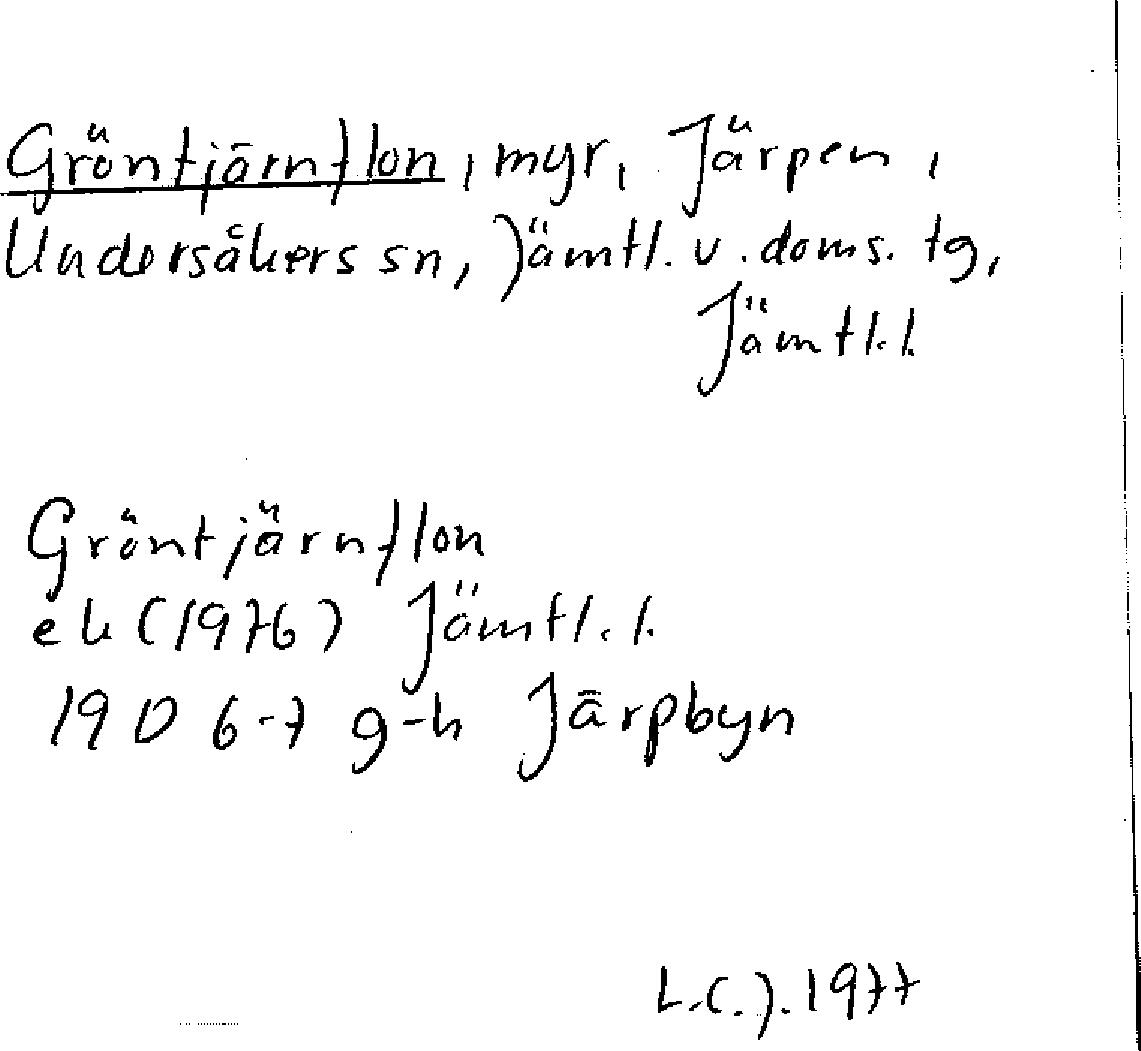 Gröntjärnflon, myr, Järpen,
Undersåkers sn, Jämtl. v. doms. tg,
Jämtl. l.
Gröntjärnflon
ek (1976) Jämtl. l.
19 D 6-7 g-h Järpbyn
L.C.J. 1977